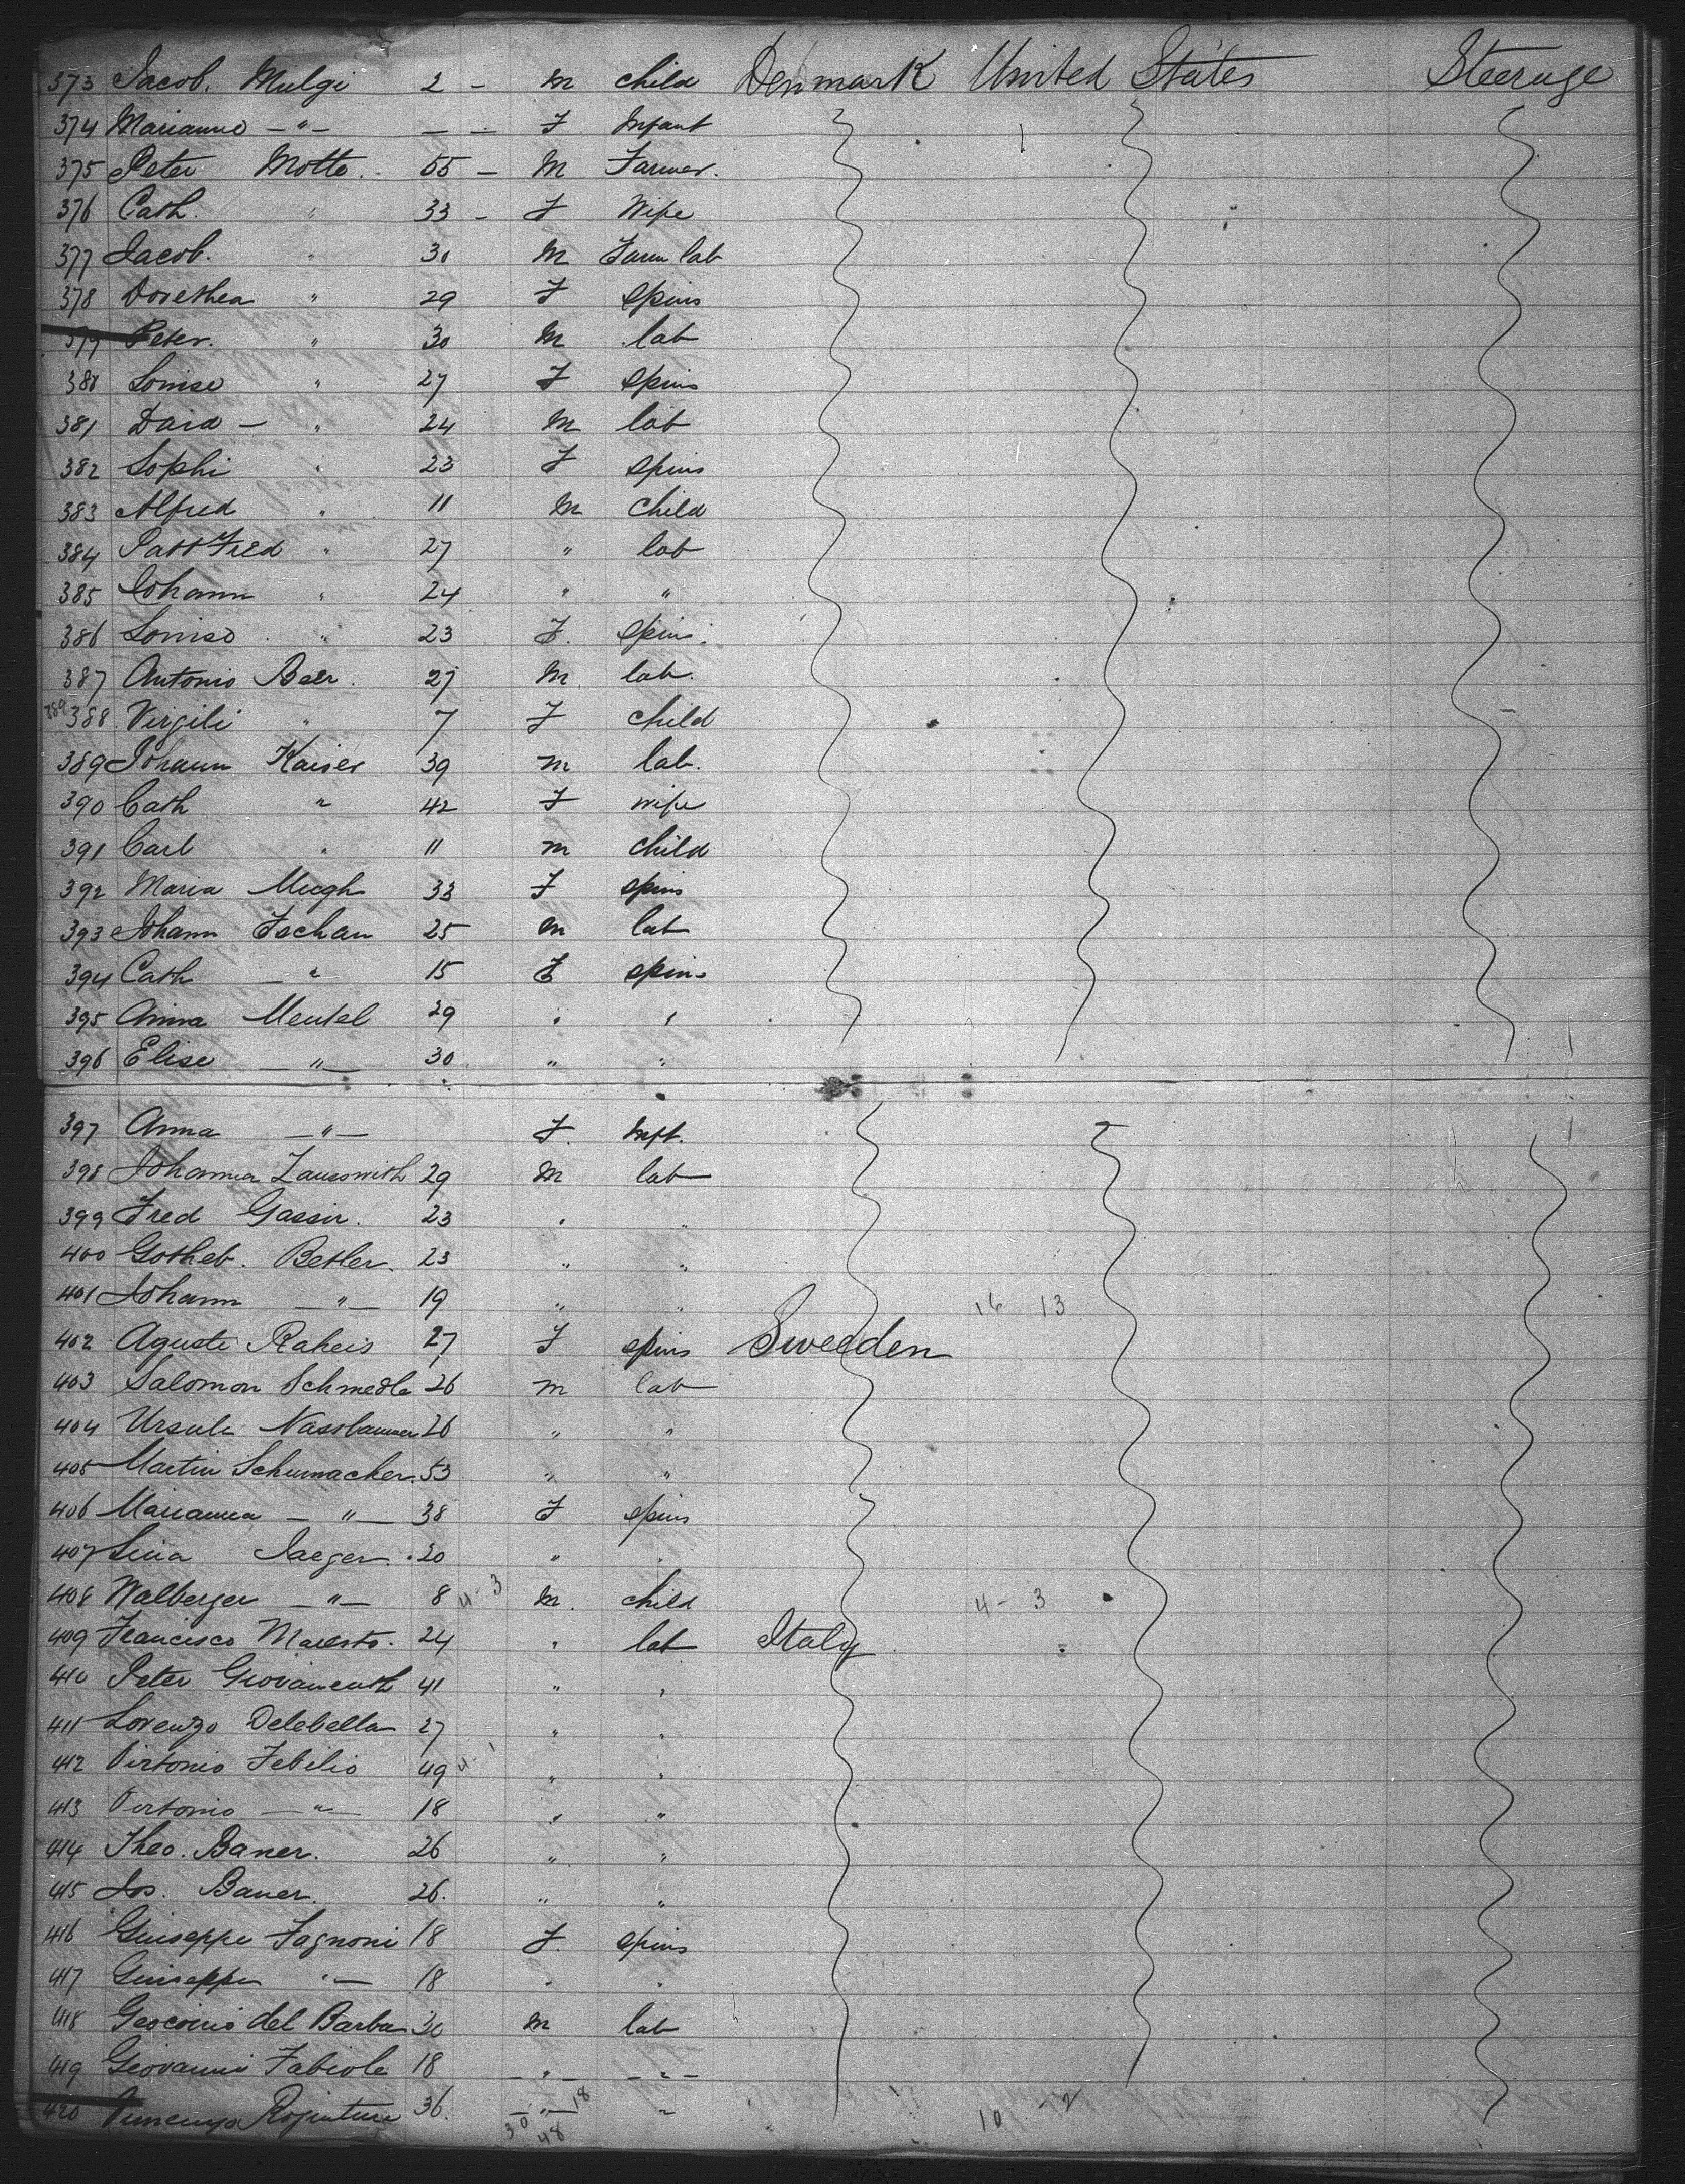 373 Jacob. Mulgi 2 - M child Denmark United States Steerage
374 Marianne - " - - - F Infant
375 Peter Motto. 55 - M Farmer.
376 Cath. " 33 - F Wife
377 Jacob. " 30 M Farm lab
378 Dorethea " 29 F spins
379 Peter. " 30 M lab
380 Louise " 27 F spins
381 David - " 24 M lab
382 Sophi " 23 F spins
383 Alfred " 11 M child
384 Fred " 27 " lab
385 Johann " 24 " "
386 Louise " 23 F. spins.
387 Antonio Beer. 27 M lab.
388 Virgili " 7 F child
389 Johann Kaiser 39 M lab.
390 Cath " 42 F wife
391 Carl " 11 M child
392 Maria Mugh 33 F spins
393 Johann Tschan 25 M lab
394 Cath - " 15 F spins
395 Anna Meutel 29 " "
396 Elise - " - 30 " "
397 Anna - " - F. Inft.
398 Johanna 29 M lab
399 Fred Gasser. 23 " "
400 Gotheb. Betler. 23 " "
401 Johann - " - 19 " " 16 13
402 Aguste Raheis 27 F spins Sweeden
403 Salomon Schmedle 26 M lab
404 Ursule Nassbaumer 26 " "
405 Martin Schumacher. 53 " "
406 Marianna - " - 38 F spins
407 Lina Jaeger. 20 " "
408 Walberger - " - 8 4-3 M. child 4-3
409 Francisco Maesto. 24 " lab Italy
410 Peter 41 " "
411 Lorenzo Delebella 27 " "
412 Pirtonio Febilio 49 4-1 " "
413 Pirtonio - " - 18 " "
414 Theo. Baner. 26 " "
415 Jos. Bauer. 26. " "
416 Giuseppe Fagnoni 18 F. spins
417 Giuseppe " - 18 " "
418 del Barba 30 M lab
419 Giovanni Fabiole 18 - " - - " -
420 36. - " - " 10 - 2
30 18
48